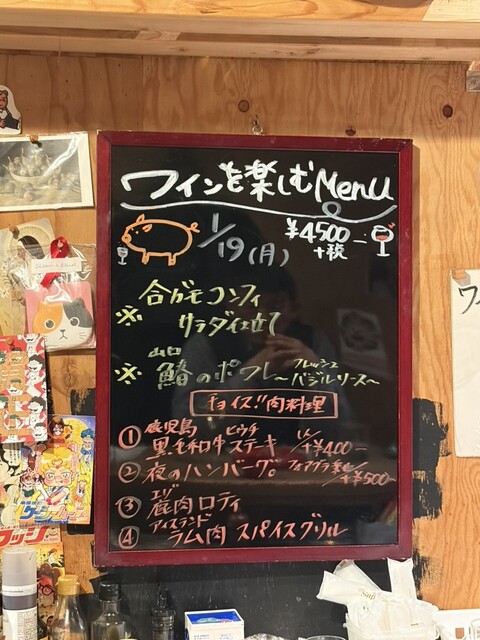 ワインを楽しむMenu
1/19(月)
¥4500-
+税
※ 合ガモコンフィ
サラダ仕立て
山口
※ 鰆のポワレ～フレッシュバジルソース～
チョイス!!肉料理
鹿児島 ヒウチ
① 黒毛和牛ステキ +¥400-
② 夜のハンバーグ。 フォアグラ乗せ/+¥500-
エゾ
③ 鹿肉ロティ
アイスランド
④ ラム肉スパイスグリル